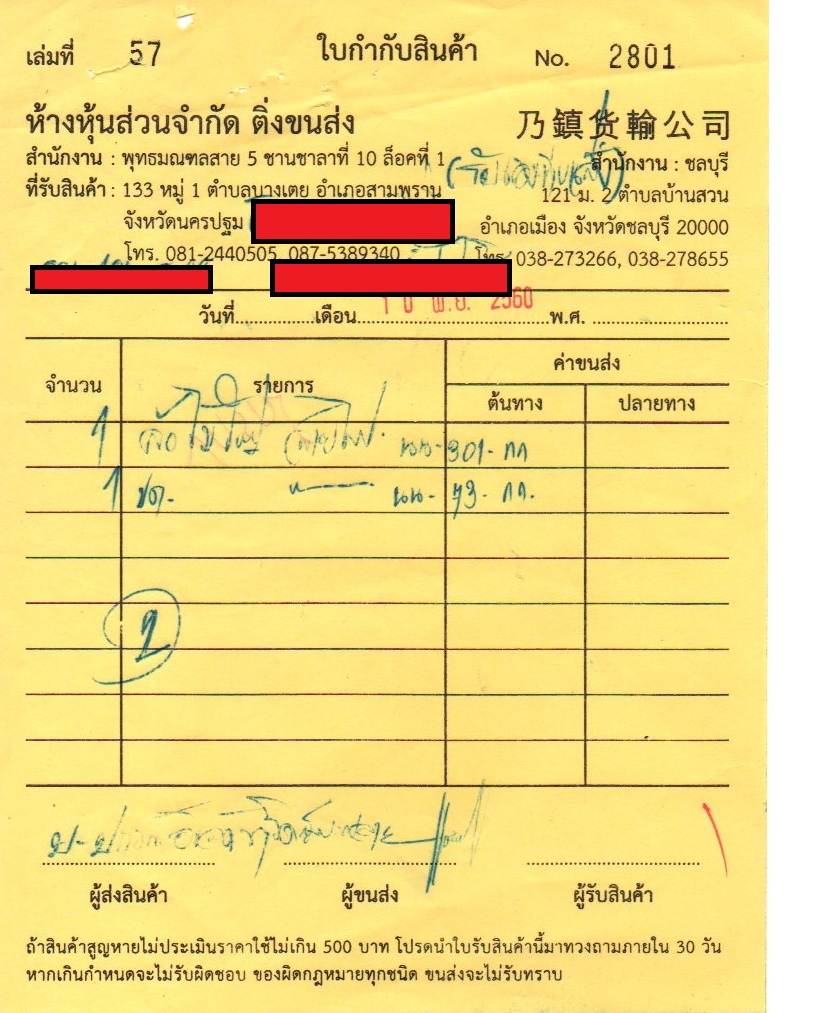 เล่มที่ 57 ใบกำกับสินค้า No. 2801
ห้างหุ้นส่วนจำกัด ติ่งขนส่ง 乃鎮货輸公司
สำนักงาน : พุทธมณฑลสาย 5 ชานชาลาที่ 10 ล็อคที่ 1 สำนักงาน : ชลบุรี
ที่รับสินค้า : 133 หมู่ 1 ตำบลบางเตย อำเภอสามพราน 121 ม. 2 ตำบลบ้านสวน
จังหวัดนครปฐม อำเภอเมือง จังหวัดชลบุรี 20000
โทร. 081-2440505, 087-5389340 โทร. 038-273266, 038-278655
วันที่ เดือน 10 พ.ย. 2560 พ.ศ.
จำนวน รายการ ค่าขนส่ง
ต้นทาง ปลายทาง
1 301- กก
1 73- กก.
2
ผู้ส่งสินค้า ผู้ขนส่ง ผู้รับสินค้า
ถ้าสินค้าสูญหายไม่ประเมินราคาใช้ไม่เกิน 500 บาท โปรดนำใบรับสินค้านี้มาทวงถามภายใน 30 วัน
หากเกินกำหนดจะไม่รับผิดชอบ ของผิดกฎหมายทุกชนิด ขนส่งจะไม่รับทราบ